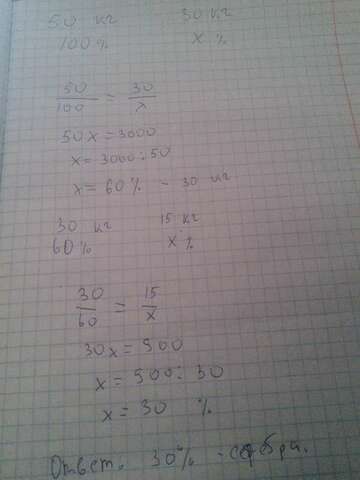 50 кг 30 кг
100% x %
50/100 = 30/x
50x = 3000
x = 3000 : 50
x = 60% - 30 кг
30 кг 15 кг
60% x %
30/60 = 15/x
30x = 900
x = 900 : 30
x = 30 %
Ответ. 30% - серебра.